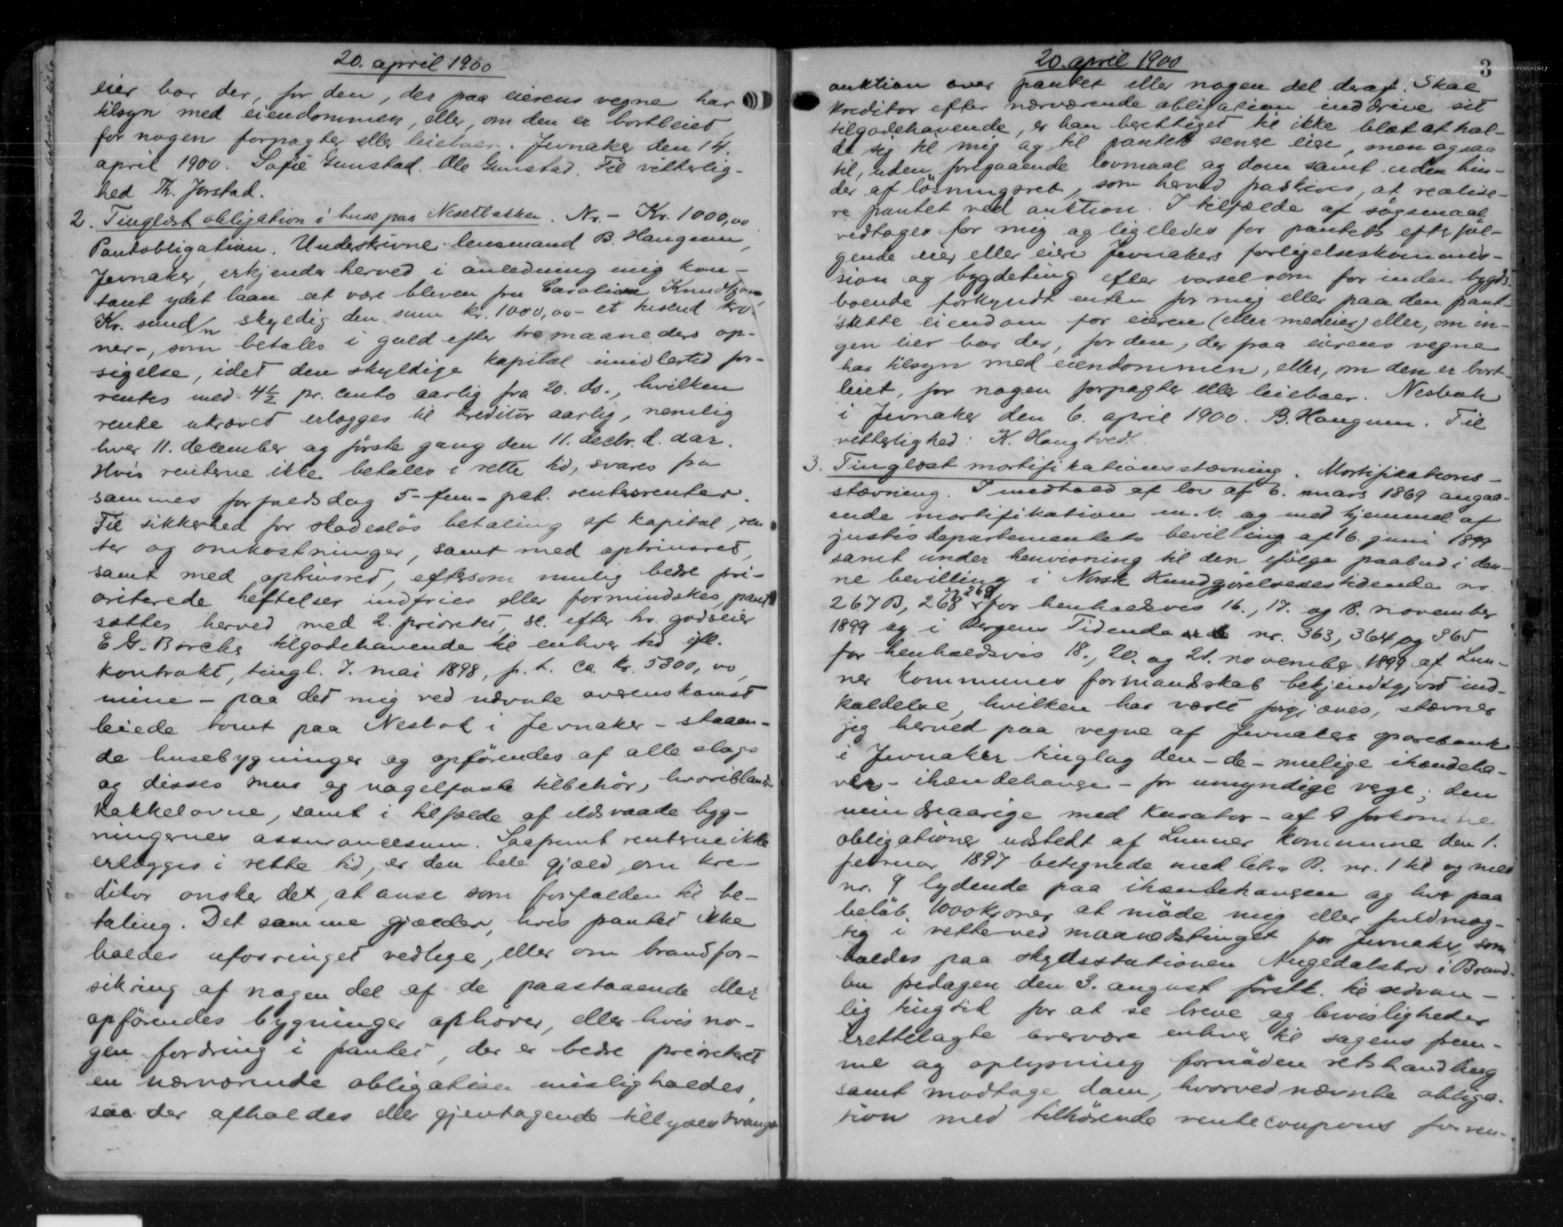 20. april 1900
eier bor der, for den, der paa eierens vegne har
tilsyn med eiendommen, eller, om den er bortleiet,
for nogen forpagter eller leieboer. Jevnaker den 14.
april 1900. Sofie Gunstad. Ole Gunstad. Til vitterlig-
hed Th. Jorstad.
2. Tinglæst obligation i huse paa Nesetbakken. Nr. - Kr. 1000,00
Pantobligation. Underskrevne lensmand B. Haugum,
Jevnaker, erkjender herved i anledning mig kon-
tant ydet laan at være bleven fru Caroline Knudtzon,
Kr. sund/n skyldig den sum kr. 1000,00 - et tusend kro-
ner -, som betales i guld efter tre maaneders op-
sigelse, idet den skyldige kapital imidlertid for-
rentes med 4½ pr. cento aarlig fra 20. ds., hvilken
rente ukrævet erlægges til kreditor aarlig, nemlig
hver 11. december og første gang den 11. decbr. d. aar.
Hvis renterne ikke betales i rette tid, svares fra
sammes forfaldsdag 5 - fem - pct. rentesrenter.
Til sikkerhed for skadesløs betaling af kapital, ren
ter og omkostninger, samt med optrinsret,
samt med optrinsret, eftersom mulig bedre pri-
oriterede heftelser indfries eller formindskes, pant
sættes herved med 2. prioritet, se. efter hr. godseier
E. G. Borchs tilgodehavende til enhver tid ifl.
kontrakt, tingl. 7. mai 1898, p. t. ca kr. 5300,00,
mine - paa det mig ved nævnte overenskomst
leiede tomt paa Nesbak i Jevnaker - staaen-
de husebygninger og opførendes af alle slags
og disses mur og nagelfaste tilbehør, hvoriblandt
kakkelovne, samt i tilfælde af ildsvaade byg-
ningernes assurancesum. Saafremt renterne ikke
erlægges i rette tid, er den hele gjæld, om kre-
ditor ønsker det, at anse som forfalden til be-
taling. Det samme gjælder, hvis pantet ikke
holdes uforringet vedlige, eller om brandfor-
sikring af nogen del af de paastaaende eller
opførendes bygninger ophører, eller hvis no-
gen fordring i pantet, der er bedre prioriteret
en nærværende obligation misligholdes,
saa der afholdes eller gjentagende tillyses tvangs
20. april 1900
3
auktion over pantet eller nogen del deraf. Skal
kreditor efter nærværende obligation inddrive sit
tilgodehavende, er han berettiget til ikke blot at hol-
de sig til mig og til pantets senere eier, men ogsaa
til, uden foregaaende lovmaal og dom samt uden hin-
der af løsningsret, som herved faskives, at realise-
re pantet ved auktion. I tilfælde af søgsmaal
vedtages for mig og ligeledes for pantets efterføl-
gende eier eller eiere Jevnakers forligelseskommis-
sion og bygdeting efter varsel som for inden bygds
boende forkyndt enten for mig eller paa den pant-
satte eiendom for eieren (eller medeier) eller, om in-
gen eier bor der, for den, der paa eierens vegne
har tilsyn med eiendommen, eller, om den er bort-
leiet, for nogen forpagter eller leieboer. Nesbak
i Jevnaker den 6. april 1900. B. Haugum. Til
vitterlighed: K. Haugtvedt.
3. Tinglæst mortifikationsstævning. Mortifikations-
stævning. I medhold af lov af 6. mars 1869 angaa-
ende mortifikation m. v. og med hjemmel af
justisdepartementets bevilling af 16. juni 1899
samt under henvisning til den ifølge paabud i den-
ne bevilling i Norsk Kundgjørelsestidende nr.
267 B, 268 og 269 for henholdsvis 16., 17. og 18. november
1899 og i Bergens Tidende nr. 363, 364 og 365
for henholdsvis 18., 20. og 21. november 1899 af Lun-
ner kommunes formandskab bekjendtgjort ind-
kaldelse, hvilken har været forgjæves, stævner
jeg herved paa vegne af Jevnaker sparebank
i Jevnaker tinglag den - de - mulige ihændeha-
ver - ihændehavere - for umyndige værge; den
mindreaarige med kurator - af 9 forkomne
obligationer udstedt af Lunner kommune den 1.
februar 1897 betegnede med litra B. nr. 1 til og med
nr. 9 lydende paa ihændehaveren og hver paa
beløb 1000 kroner at møde mig eller fuldmæg-
tig i rette ved maanedstinget for Jevnaker, som
holdes paa skydsstationen Augedalsbro i Brand-
bu fredagen den 3. august førstk. til sedvan-
lig tingtid for at se breve og bevisligheder
irettelagte overvære enhver til sagens frem-
me og oplysning fornøden retshandling
samt modtage dom, hvorved nævnte obliga-
tion med tilhørende rentecoupons for ven-